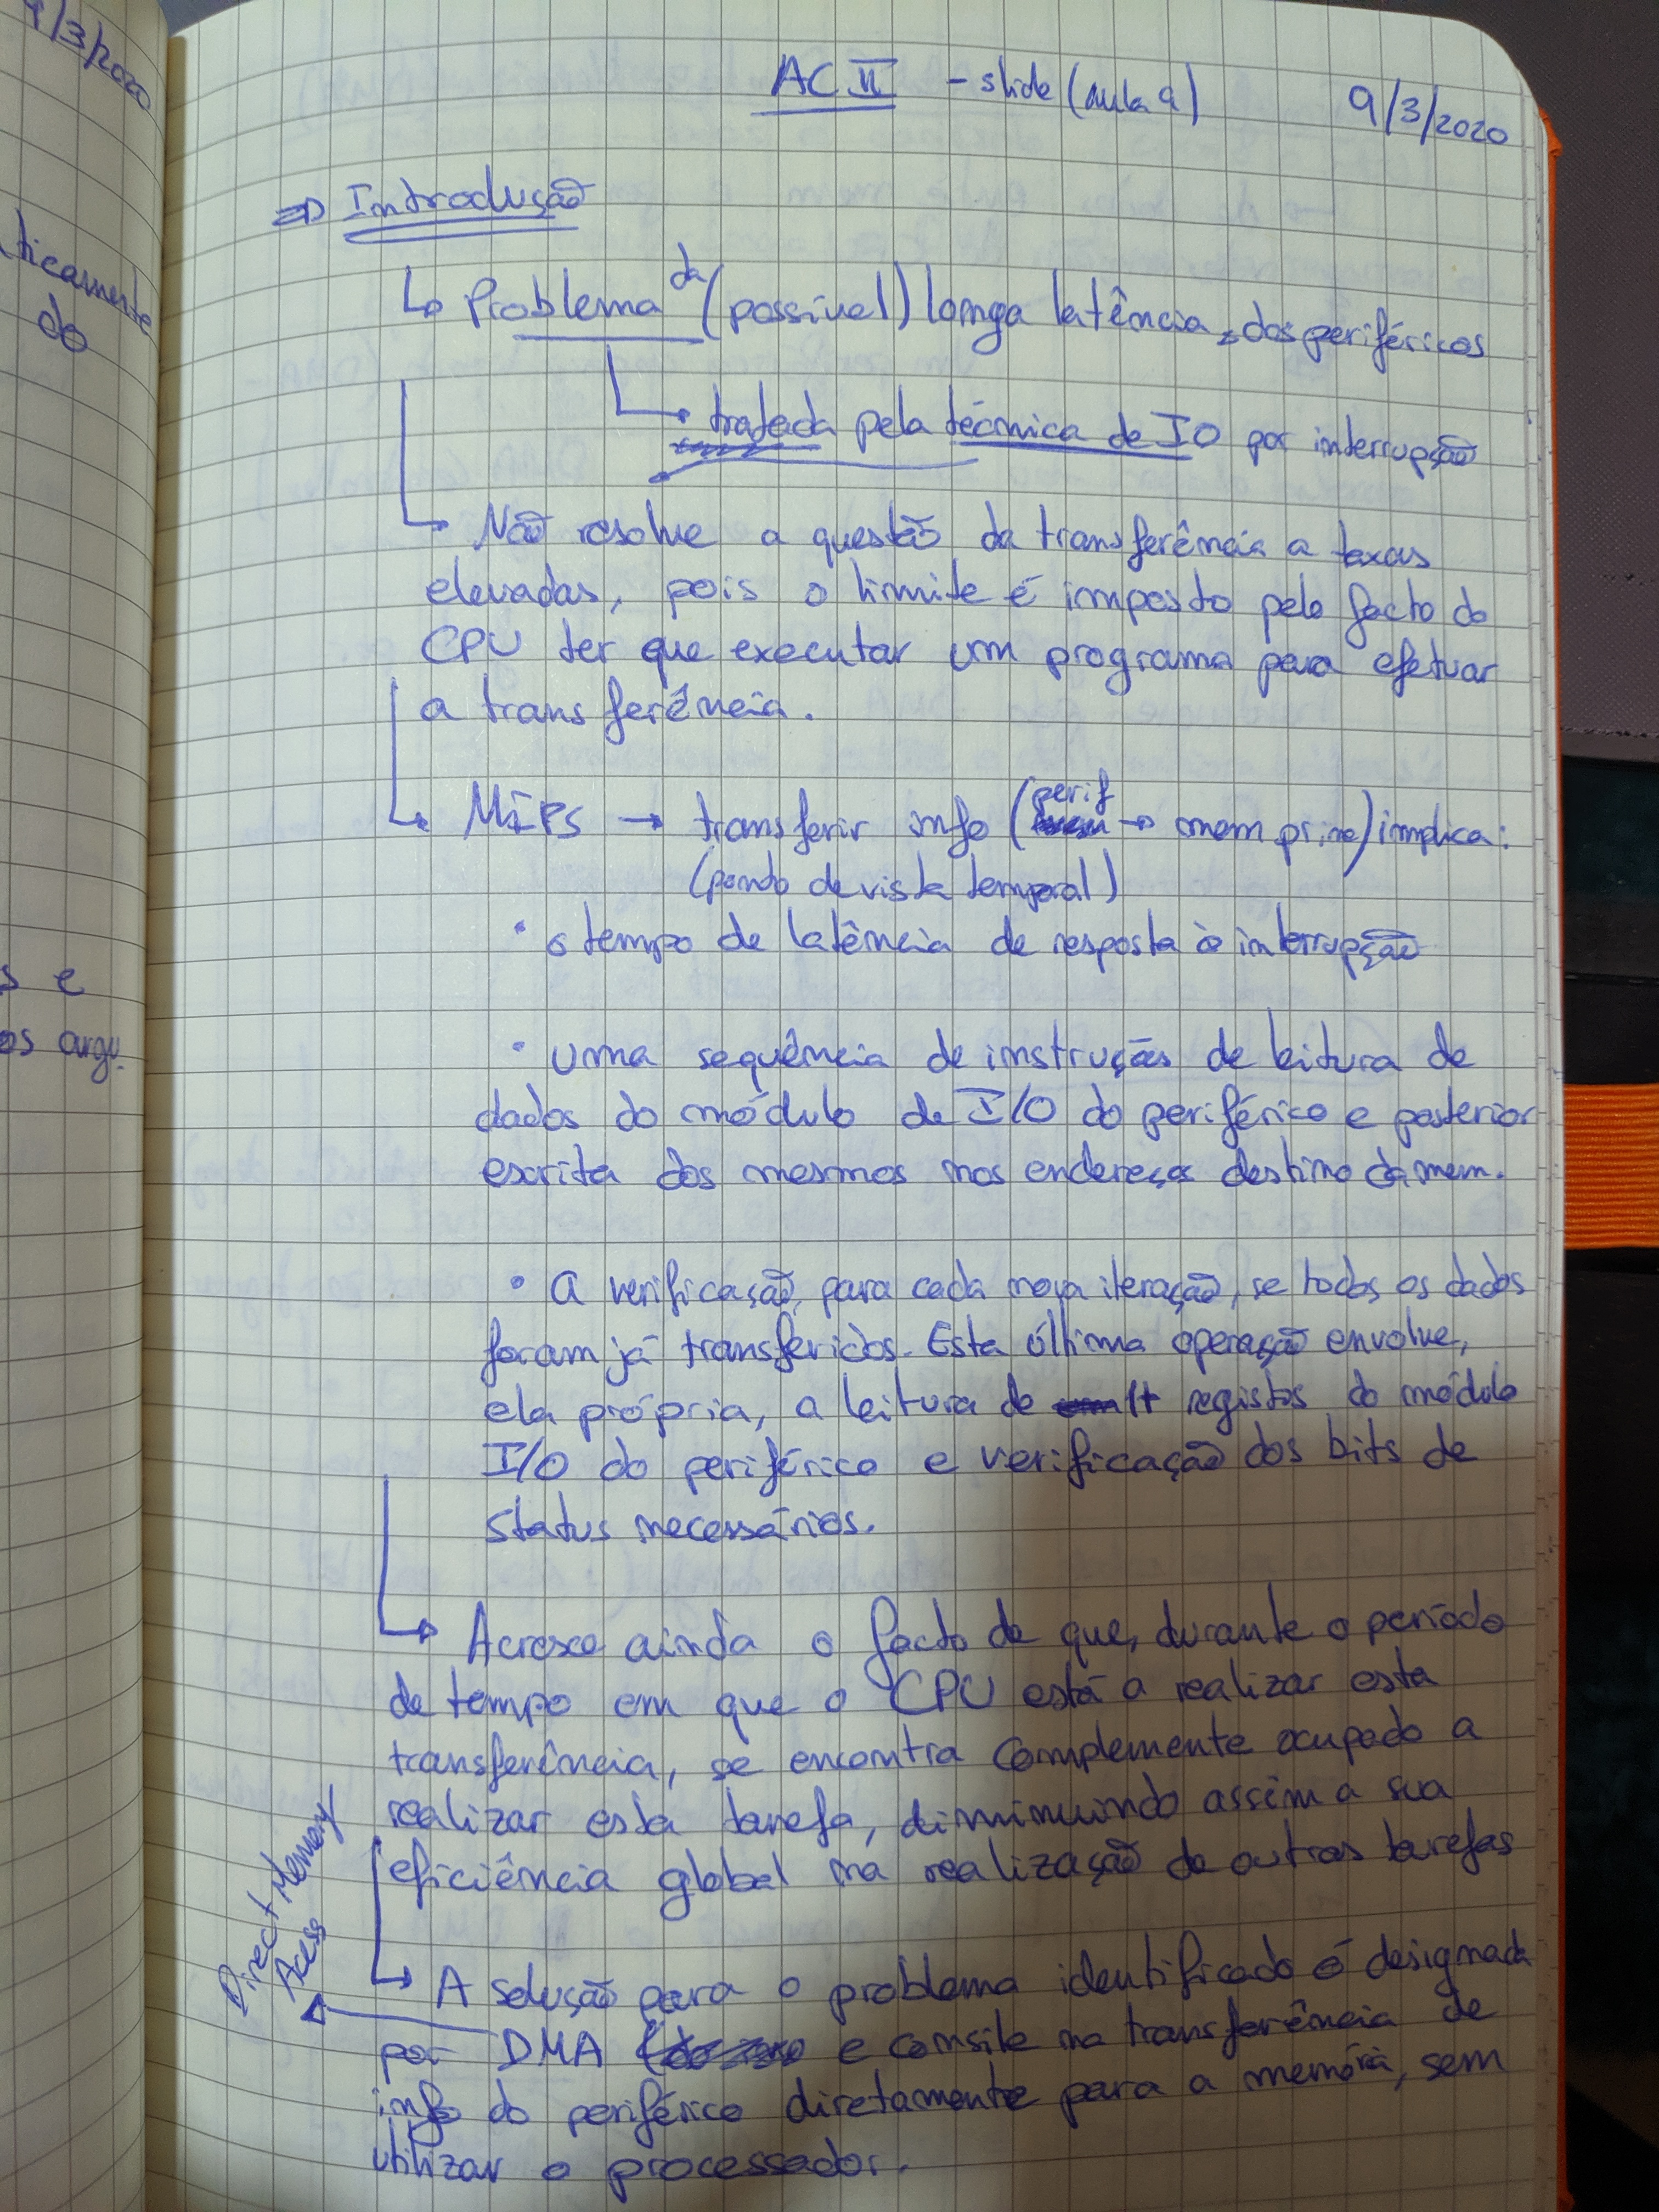 4/3/2020
ticamente
do
s e
os argu.
AC II - slide (aula 9) 9/3/2020
⇒ Introdução
↳ Problema da (possível) longa latência dos periféricos
↳ tratada pela técnica de IO por interrupção
↳ Não resolve a questão da transferência a taxas
elevadas, pois o limite é imposto pelo facto do
CPU ter que executar um programa para efetuar
a transferência.
↳ MIPS → transferir info (perif → mem princ) implica:
(ponto de vista temporal)
• o tempo de latência de resposta à interrupção
• uma sequência de instruções de leitura de
dados do módulo de I/O do periférico e posterior
escrita dos mesmos nos endereços destino da mem.
• A verificação, para cada nova iteração, se todos os dados
foram já transferidos. Esta última operação envolve,
ela própria, a leitura de registos do módulo
I/O do periférico e verificação dos bits de
status necessários.
↳ Acresce ainda o facto de que, durante o período
de tempo em que o CPU está a realizar esta
transferência, se encontra complemente ocupado a
realizar esta tarefa, diminuindo assim a sua
eficiência global na realização de outras tarefas
↳ A solução para o problema identificado é designada
por DMA e consite na transferência de
info do periférico diretamente para a memória, sem
utilizar o processador.
Direct Memory
Acess